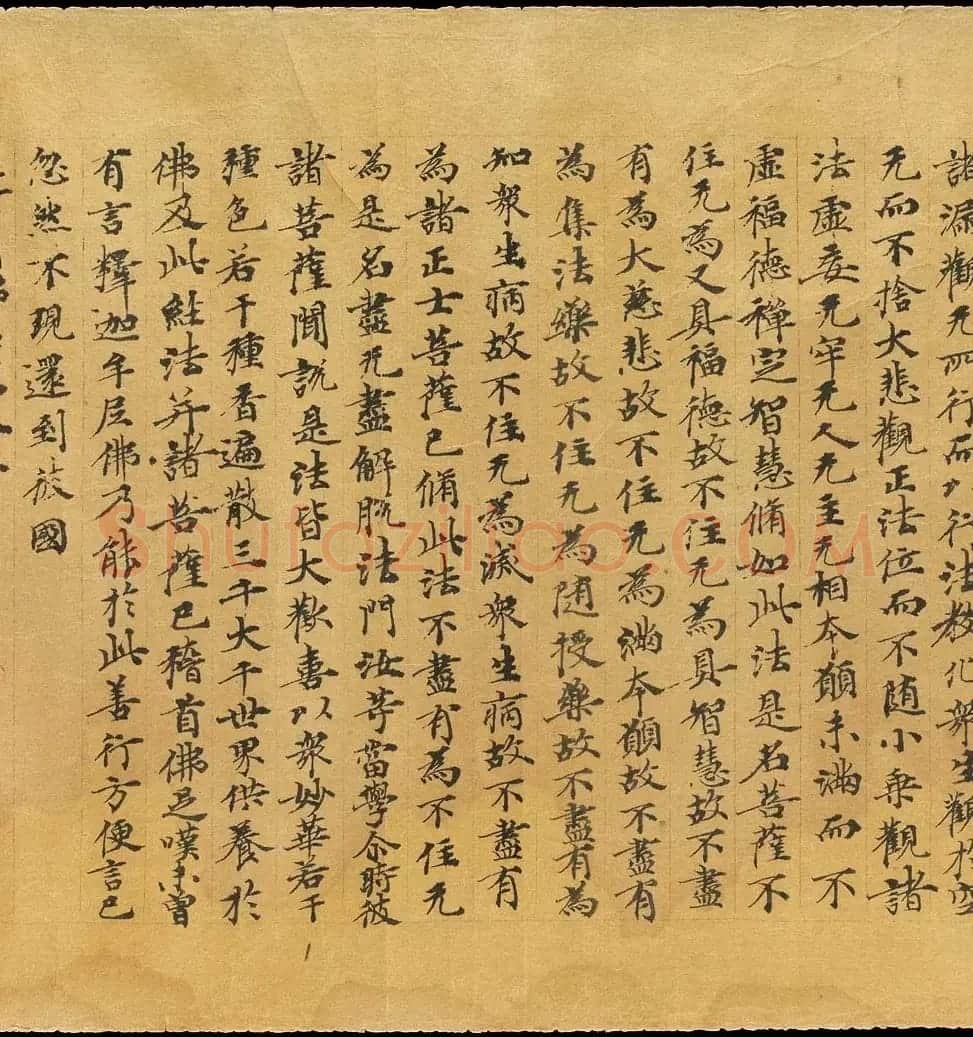 諸漏觀无所行而以行法教化衆生觀於空
无而不捨大悲觀正法位而不随小乘觀諸
法虛妄无牢无人无主无相本願未滿而不
虛福德禪定智慧脩如此法是名菩薩不
住无為又具福德故不住无為具智慧故不盡
有為大慈悲故不住无為滿本願故不盡有
為集法藥故不住无為随授藥故不盡有為
知衆生病故不住无為滅衆生病故不盡有
為諸正士菩薩已脩此法不盡有為不住无
為是名盡无盡解脫法門汝等當學尒時彼
諸菩薩聞說是法皆大歡喜以衆妙華若干
種色若干種香遍散三千大千世界供養於
佛及此經法并諸菩薩已稽首佛足嘆未曾
有言釋迦牟尼佛乃能於此善行方便言已
忽然不現還到彼國
Shufaziliao.COM